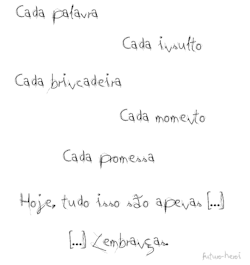 Cada palavra
Cada insulto
Cada brincadeira
Cada momento
Cada promessa
Hoje, tudo isso são apenas [...]
[...] Lembranças.